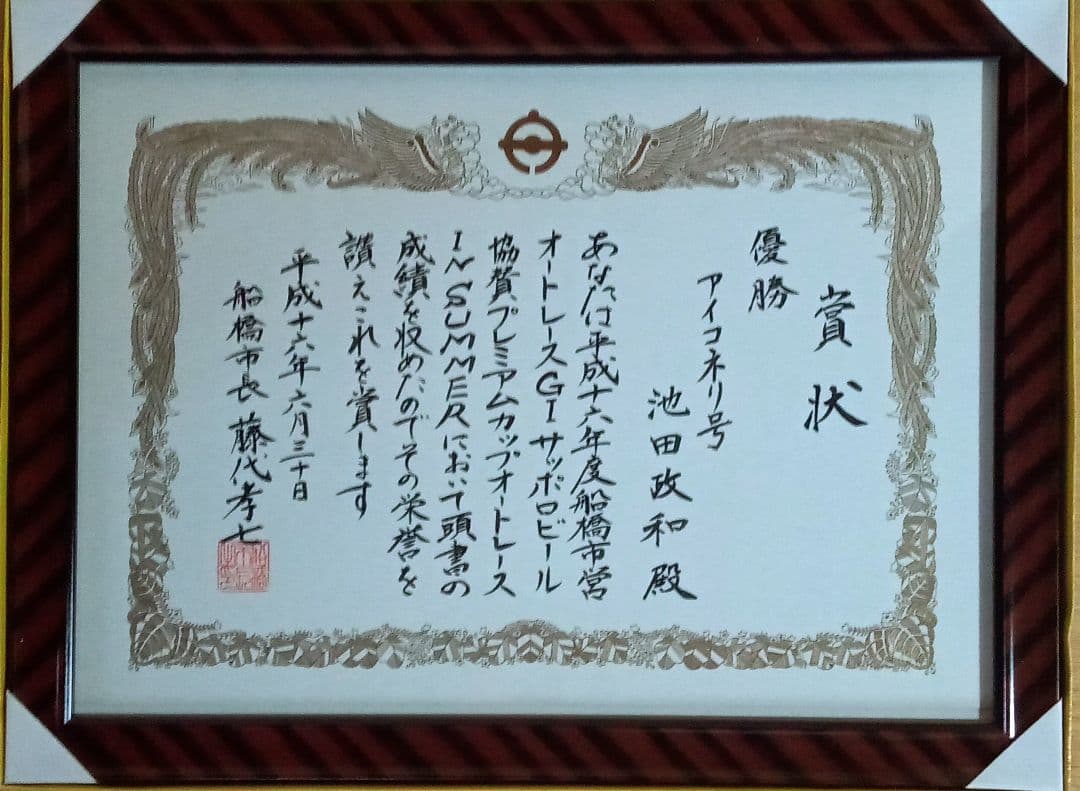 賞状
優勝
アイコネリ号
池田政和殿
あなたは平成十六年度船橋市営
オートレースGIサッポロビール
協賛プレミアムカップオートレース
IN SUMMERにおいて頭書の
成績を収めたのでその栄誉を
讃えこれを賞します
平成十六年六月三十日
船橋市長 藤代孝七